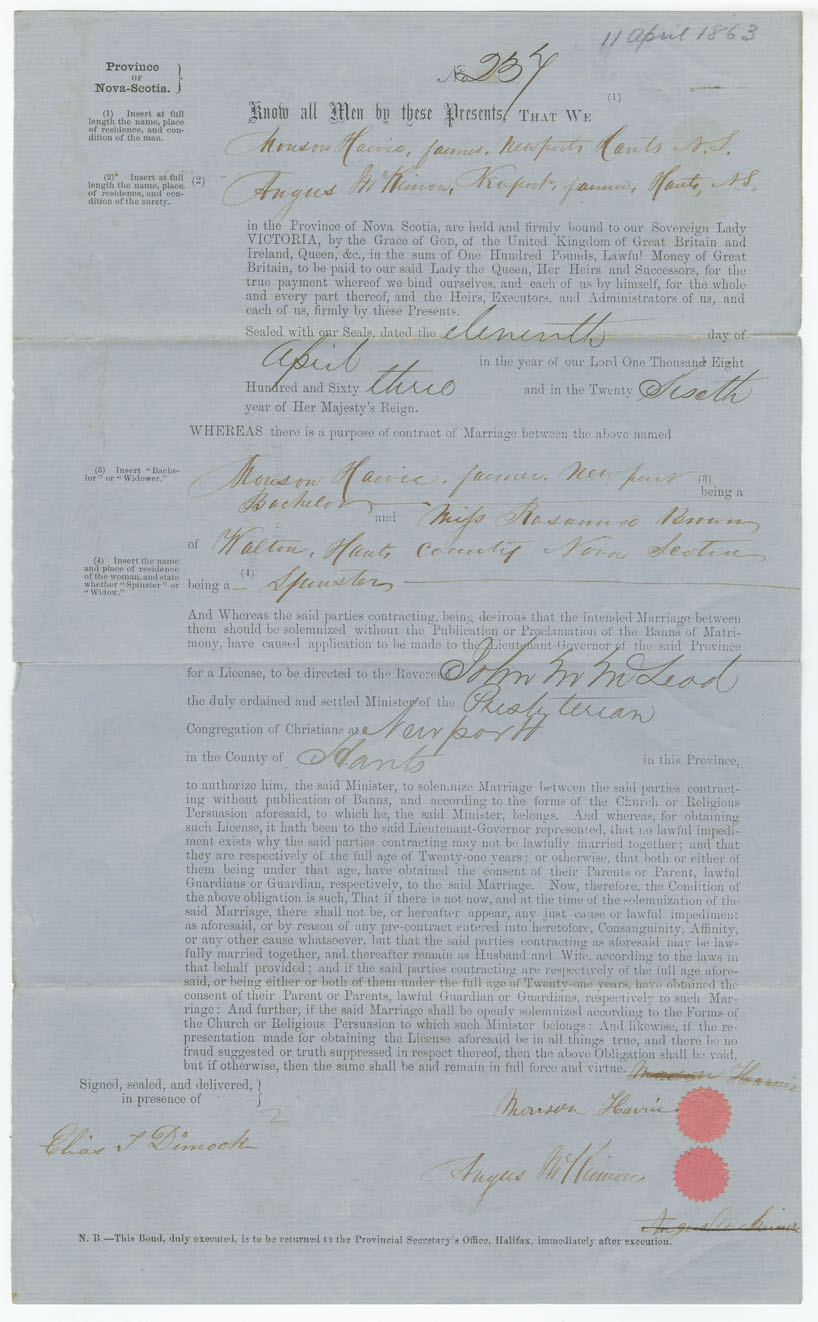 11 April 1863
Province
OF
Nova-Scotia.
No. 237
(1) Insert at full
length the name, place
of residence, and con-
dition of the man.
Know all Men by these Presents, THAT WE (1)
Monson Harvie, farmer, Newport, Hants N.S.
(2) Insert at full
length the name, place
of residence, and con-
dition of the surety.
(2) Angus McKinnon, Newport, farmer, Hants, N.S.
in the Province of Nova Scotia, are held and firmly bound to our Sovereign Lady
VICTORIA, by the Grace of GOD, of the United Kingdom of Great Britain and
Ireland, Queen, &c., in the sum of One Hundred Pounds, Lawful Money of Great
Britain, to be paid to our said Lady the Queen, Her Heirs and Successors, for the
true payment whereof we bind ourselves, and each of us by himself, for the whole
and every part thereof, and the Heirs, Executors, and Administrators of us, and
each of us, firmly by these Presents.
Sealed with our Seals, dated the eleventh day of
April in the year of our Lord One Thousand Eight
Hundred and Sixty three and in the Twenty Sixth
year of Her Majesty's Reign.
WHEREAS there is a purpose of contract of Marriage between the above named
(3) Insert "Bache-
lor" or "Widower."
Monson Harvie, farmer, Newport (3) being a
Bachelor and Miss Rosanna Brown
of Walton, Hants County Nova Scotia
(4) Insert the name
and place of residence
of the woman, and state
whether "Spinster" or
"Widow."
being a (4) Spinster
And Whereas the said parties contracting, being desirous that the intended Marriage between
them should be solemnized without the Publication or Proclamation of the Banns of Matri-
mony, have caused application to be made to the Lieutenant-Governor of the said Province
for a License, to be directed to the Reverend John M McLeod
the duly ordained and settled Minister of the Presbyterian
Congregation of Christians at Newport
in the County of Hants in this Province,
to authorize him, the said Minister, to solemnize Marriage between the said parties contract-
ing without publication of Banns, and according to the forms of the Church or Religious
Persuasion aforesaid, to which he, the said Minister, belongs. And whereas, for obtaining
such License, it hath been to the said Lieutenant-Governor represented, that no lawful impedi-
ment exists why the said parties contracting may not be lawfully married together; and that
they are respectively of the full age of Twenty-one years; or otherwise, that both or either of
them being under that age, have obtained the consent of their Parents or Parent, lawful
Guardians or Guardian, respectively, to the said Marriage. Now, therefore, the Condition of
the above obligation is such, That if there is not now, and at the time of the solemnization of the
said Marriage, there shall not be, or hereafter appear, any just cause or lawful impediment
as aforesaid, or by reason of any pre-contract entered into heretofore, Consanguinity, Affinity,
or any other cause whatsoever, but that the said parties contracting as aforesaid may be law-
fully married together, and thereafter remain as Husband and Wife, according to the laws in
that behalf provided; and if the said parties contracting are respectively of the full age afore-
said, or being either or both of them under the full age of Twenty-one years, have obtained the
consent of their Parent or Parents, lawful Guardian or Guardians, respectively to such Mar-
riage: And further, if the said Marriage shall be openly solemnized according to the Forms of
the Church or Religious Persuasion to which such Minister belongs: And likewise, if the re-
presentation made for obtaining the License aforesaid be in all things true, and there be no
fraud suggested or truth suppressed in respect thereof, then the above Obligation shall be void,
but if otherwise, then the same shall be and remain in full force and virtue. Monson Harvie
Signed, sealed, and delivered,
in presence of
Monson Harvie
Elias T Dimock
Angus McKinnon
N. B.—This Bond, duly executed, is to be returned to the Provincial Secretary's Office, Halifax, immediately after execution.